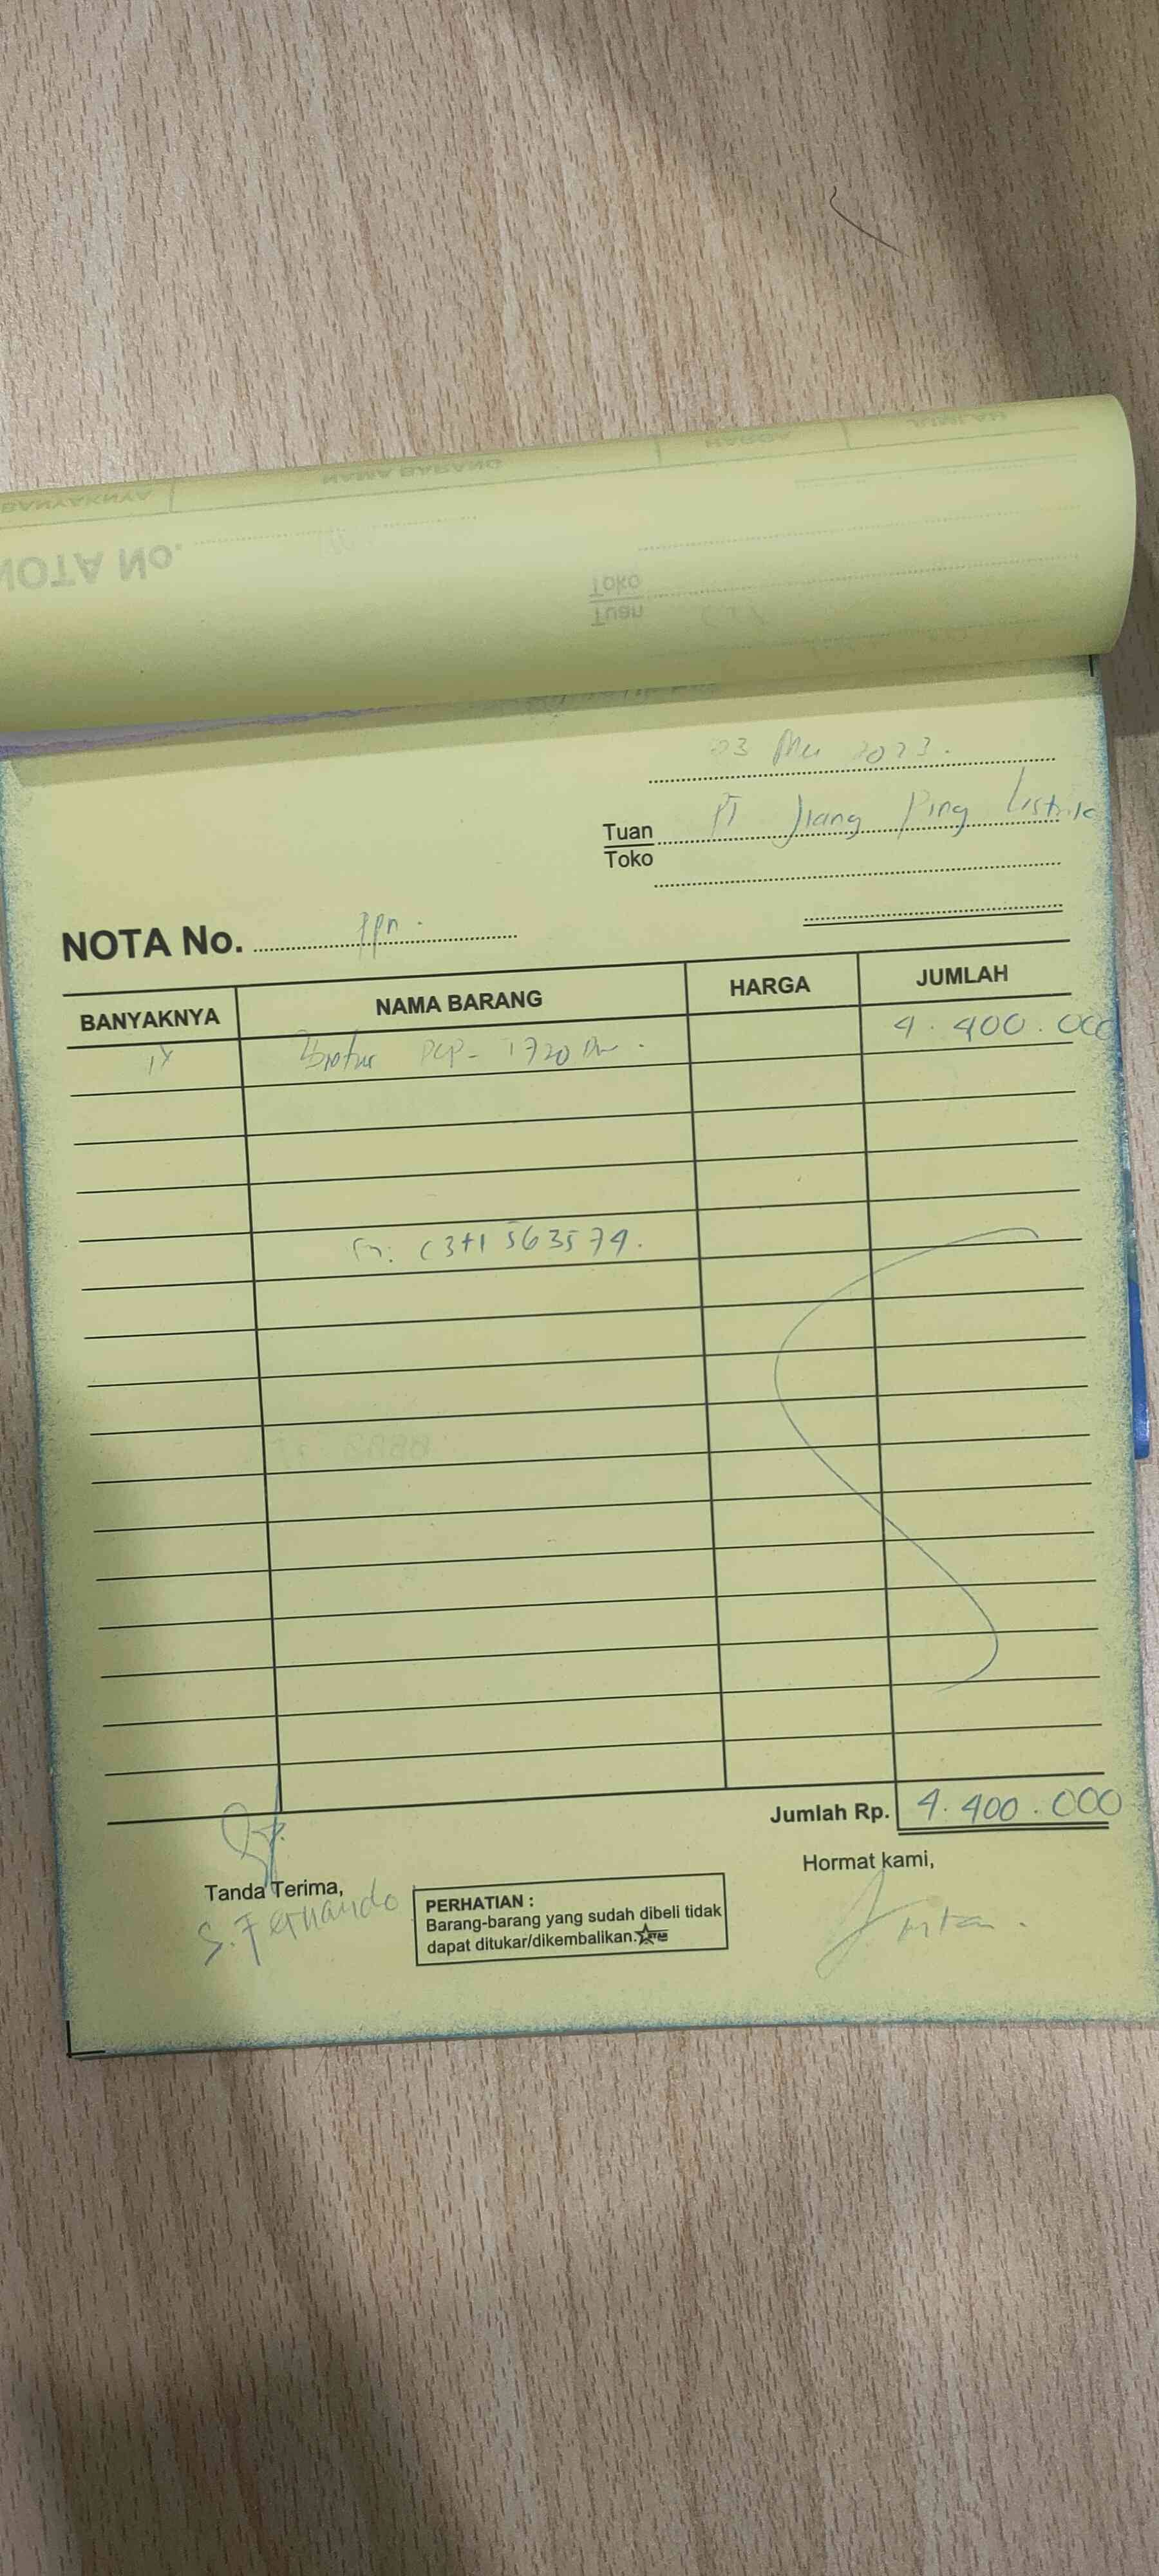 23 Mei 2023.
Tuan PT Jiang Ping Listrik
Toko
NOTA No. ppn.
BANYAKNYA NAMA BARANG HARGA JUMLAH
Brother DCP- T720 4.400.000
Sn: 563574.
Jumlah Rp. 4.400.000
Tanda Terima, Hormat kami,
S. Fernando
PERHATIAN :
Barang-barang yang sudah dibeli tidak
dapat ditukar/dikembalikan.